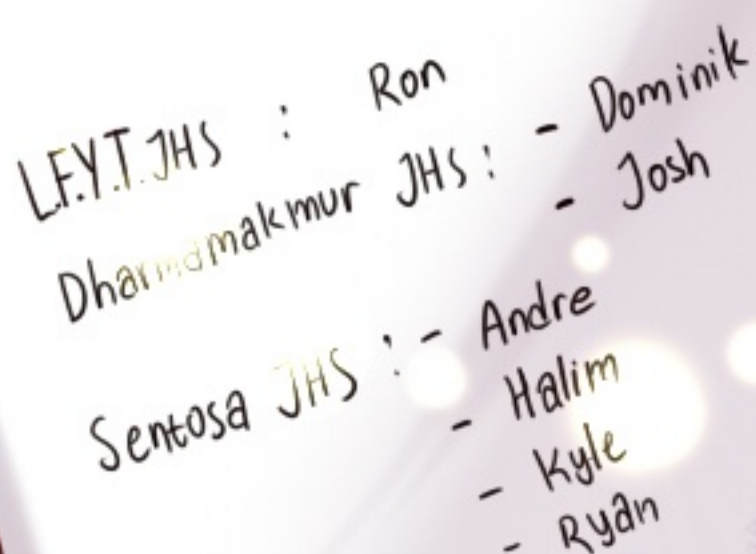 L.F.Y.T. JHS : Ron
Dharmamakmur JHS : - Dominik
- Josh
Sentosa JHS : - Andre
- Halim
- Kyle
- Ryan